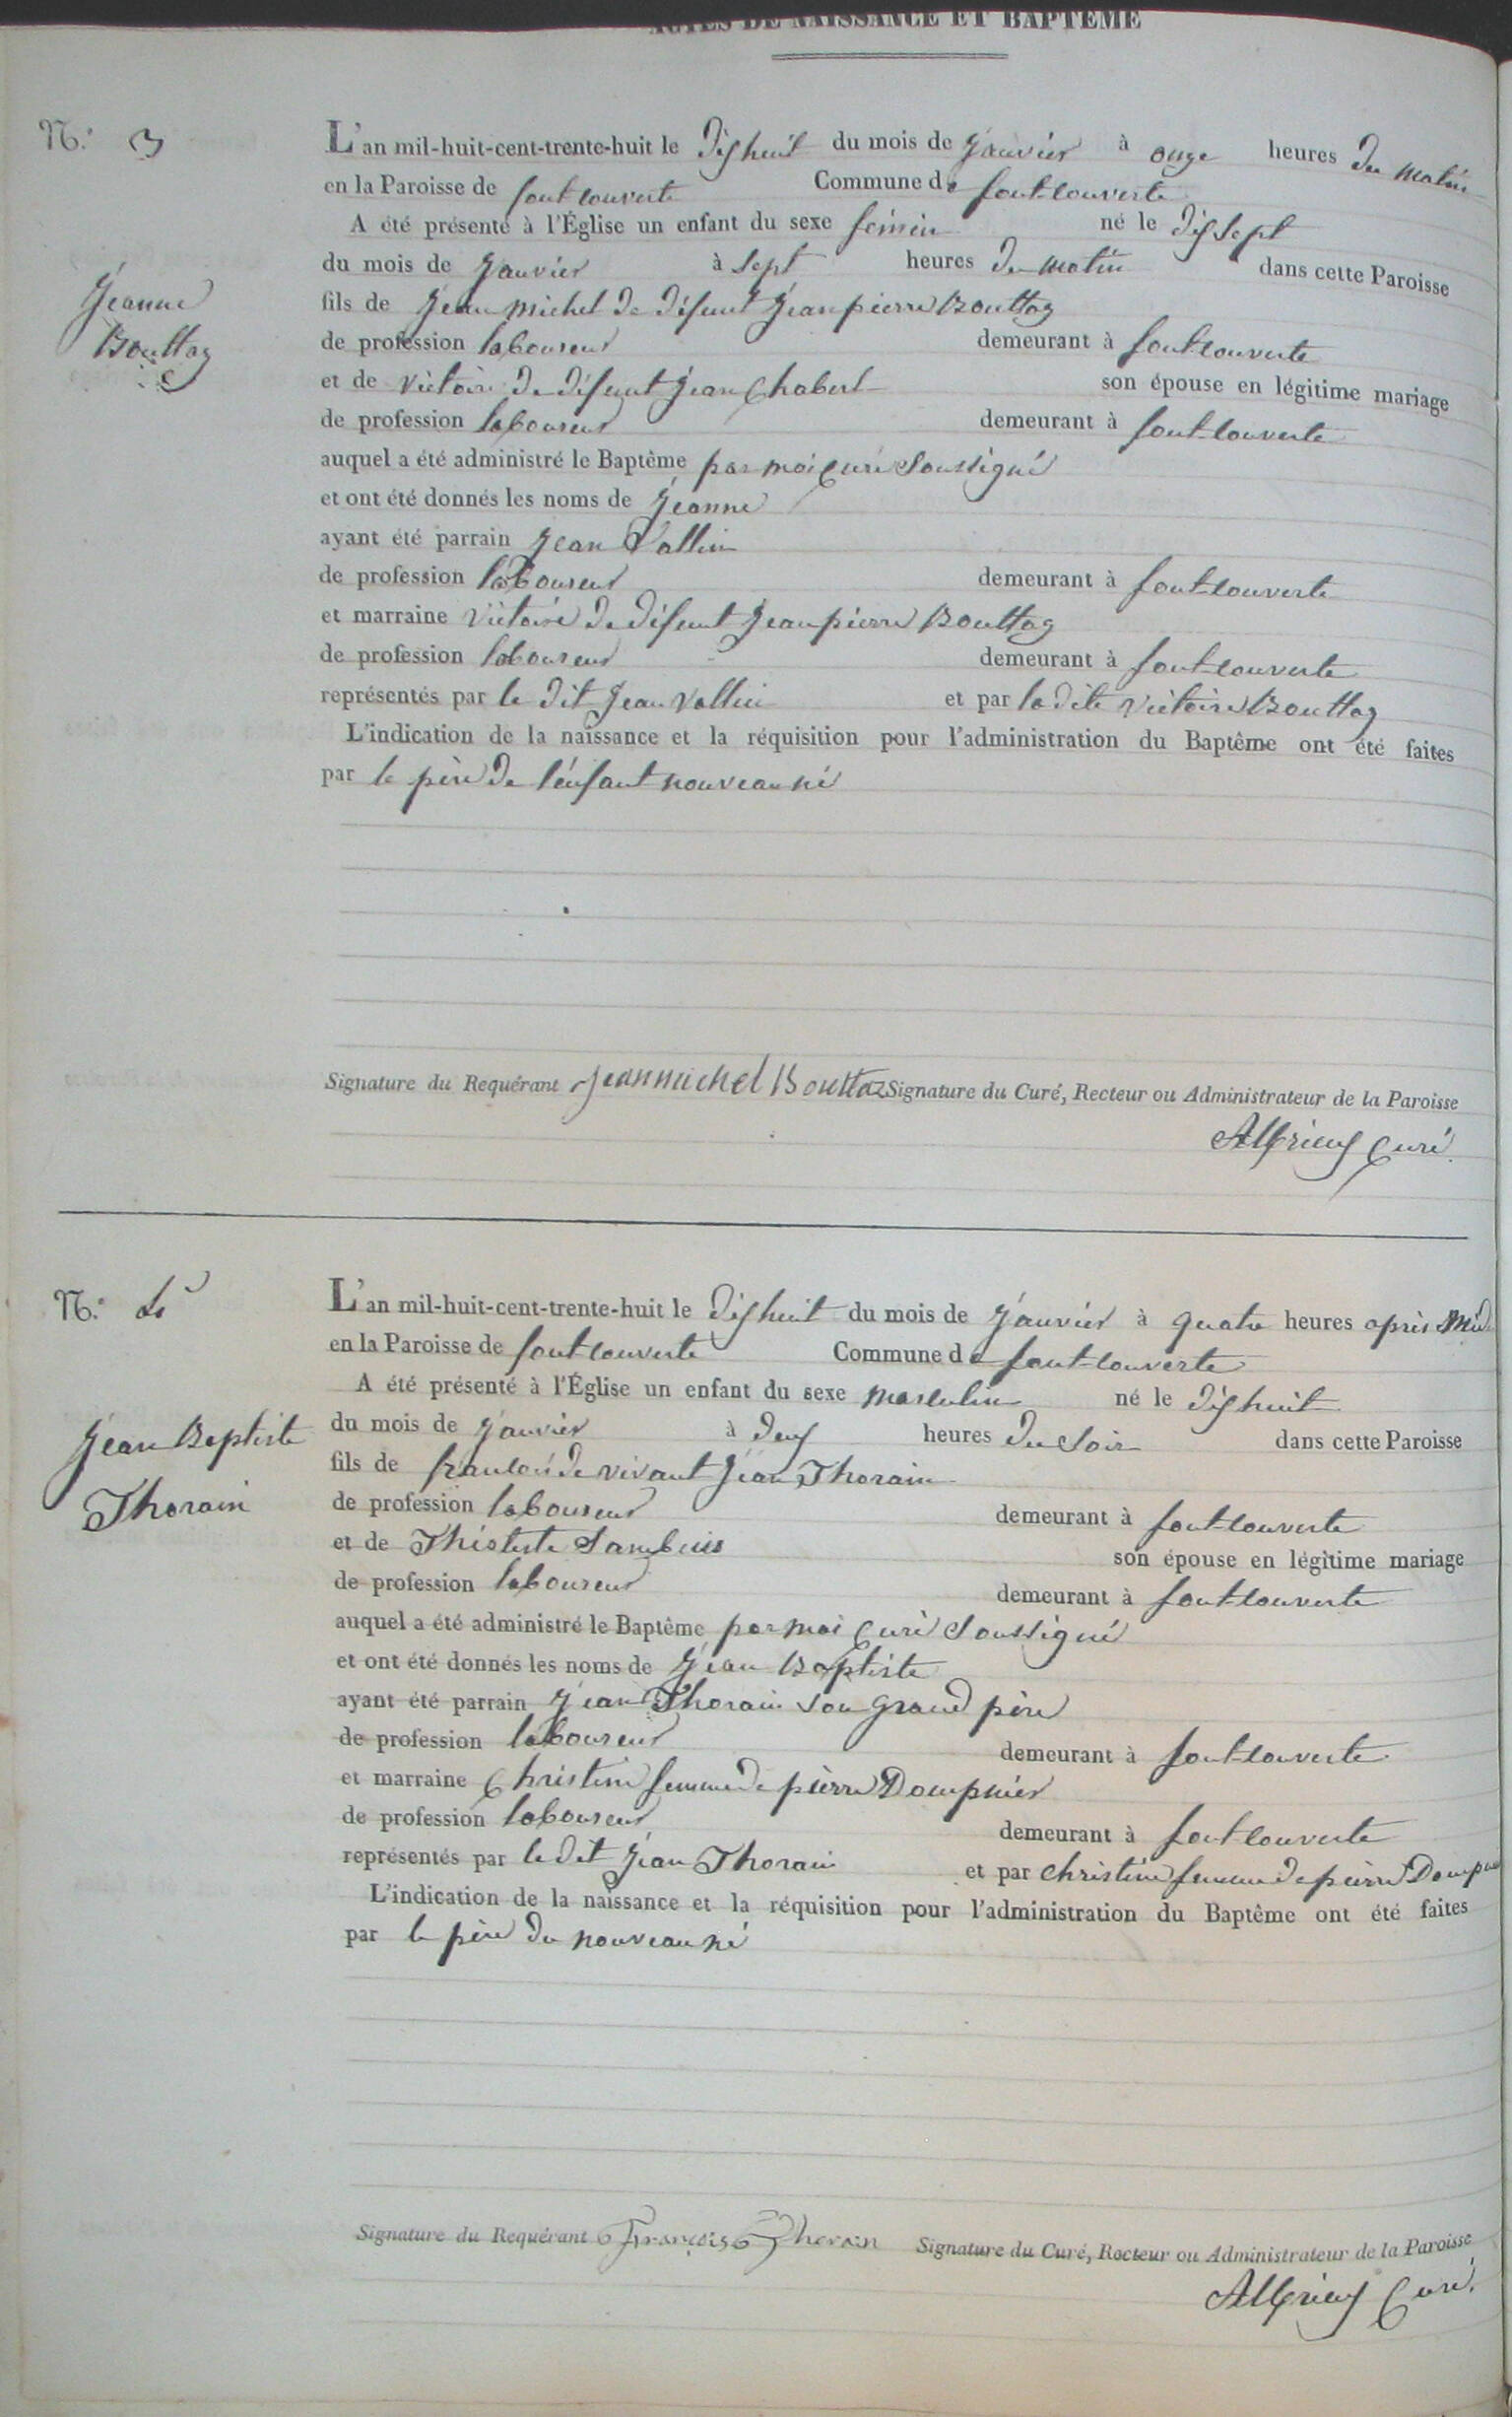 ACTES DE NAISSANCE ET BAPTÊME
N.° 3
L'an mil-huit-cent-trente-huit le dixhuit du mois de Janvier à onze heures du matin
en la Paroisse de fontcouverte Commune de fontcouverte
A été présenté à l'Église un enfant du sexe feminin né le dixsept
du mois de Janvier à sept heures du matin dans cette Paroisse
Jeanne
Bouttaz
fils de Jean michel de défunt Jean pierre Bouttaz
de profession laboureur demeurant à fontcouverte
et de victoire de défunt Jean Chabert son épouse en légitime mariage
de profession laboureur demeurant à fontcouverte
auquel a été administré le Baptême par moi Curé Soussigné
et ont été donnés les noms de Jeanne
ayant été parrain Jean Vallin
de profession laboureur demeurant à fontcouverte
et marraine victoire de défunt Jean pierre Bouttaz
de profession laboureur demeurant à fontcouverte
représentés par le dit Jean Vallin et par la dite victoire Bouttaz
L'indication de la naissance et la réquisition pour l'administration du Baptême ont été faites
par le père de l'enfant nouveau né
Signature du Requérant Jeanmichel Bouttaz Signature du Curé, Recteur ou Administrateur de la Paroisse
Curé
N.° 4
L'an mil-huit-cent-trente-huit le dixhuit du mois de Janvier à quatre heures après Midi
en la Paroisse de fontcouverte Commune de fontcouverte
A été présenté à l'Église un enfant du sexe masculin né le dixhuit
Jean Baptiste
Thorain
du mois de Janvier à deux heures du soir dans cette Paroisse
fils de françois de vivant Jean Thorain
de profession laboureur demeurant à fontcouverte
et de Sambuis son épouse en légitime mariage
de profession laboureur demeurant à fontcouverte
auquel a été administré le Baptême par moi Curé Soussigné
et ont été donnés les noms de Jean Baptiste
ayant été parrain Jean Thorain son grand père
de profession laboureur demeurant à fontcouverte
et marraine Christine femme de pierre Dompnier
de profession laboureur demeurant à fontcouverte
représentés par le dit Jean Thorain et par christine femme de pierre Dompn
L'indication de la naissance et la réquisition pour l'administration du Baptême ont été faites
par le père du nouveau né
Signature du Requérant François Thorain Signature du Curé, Recteur ou Administrateur de la Paroisse
Curé